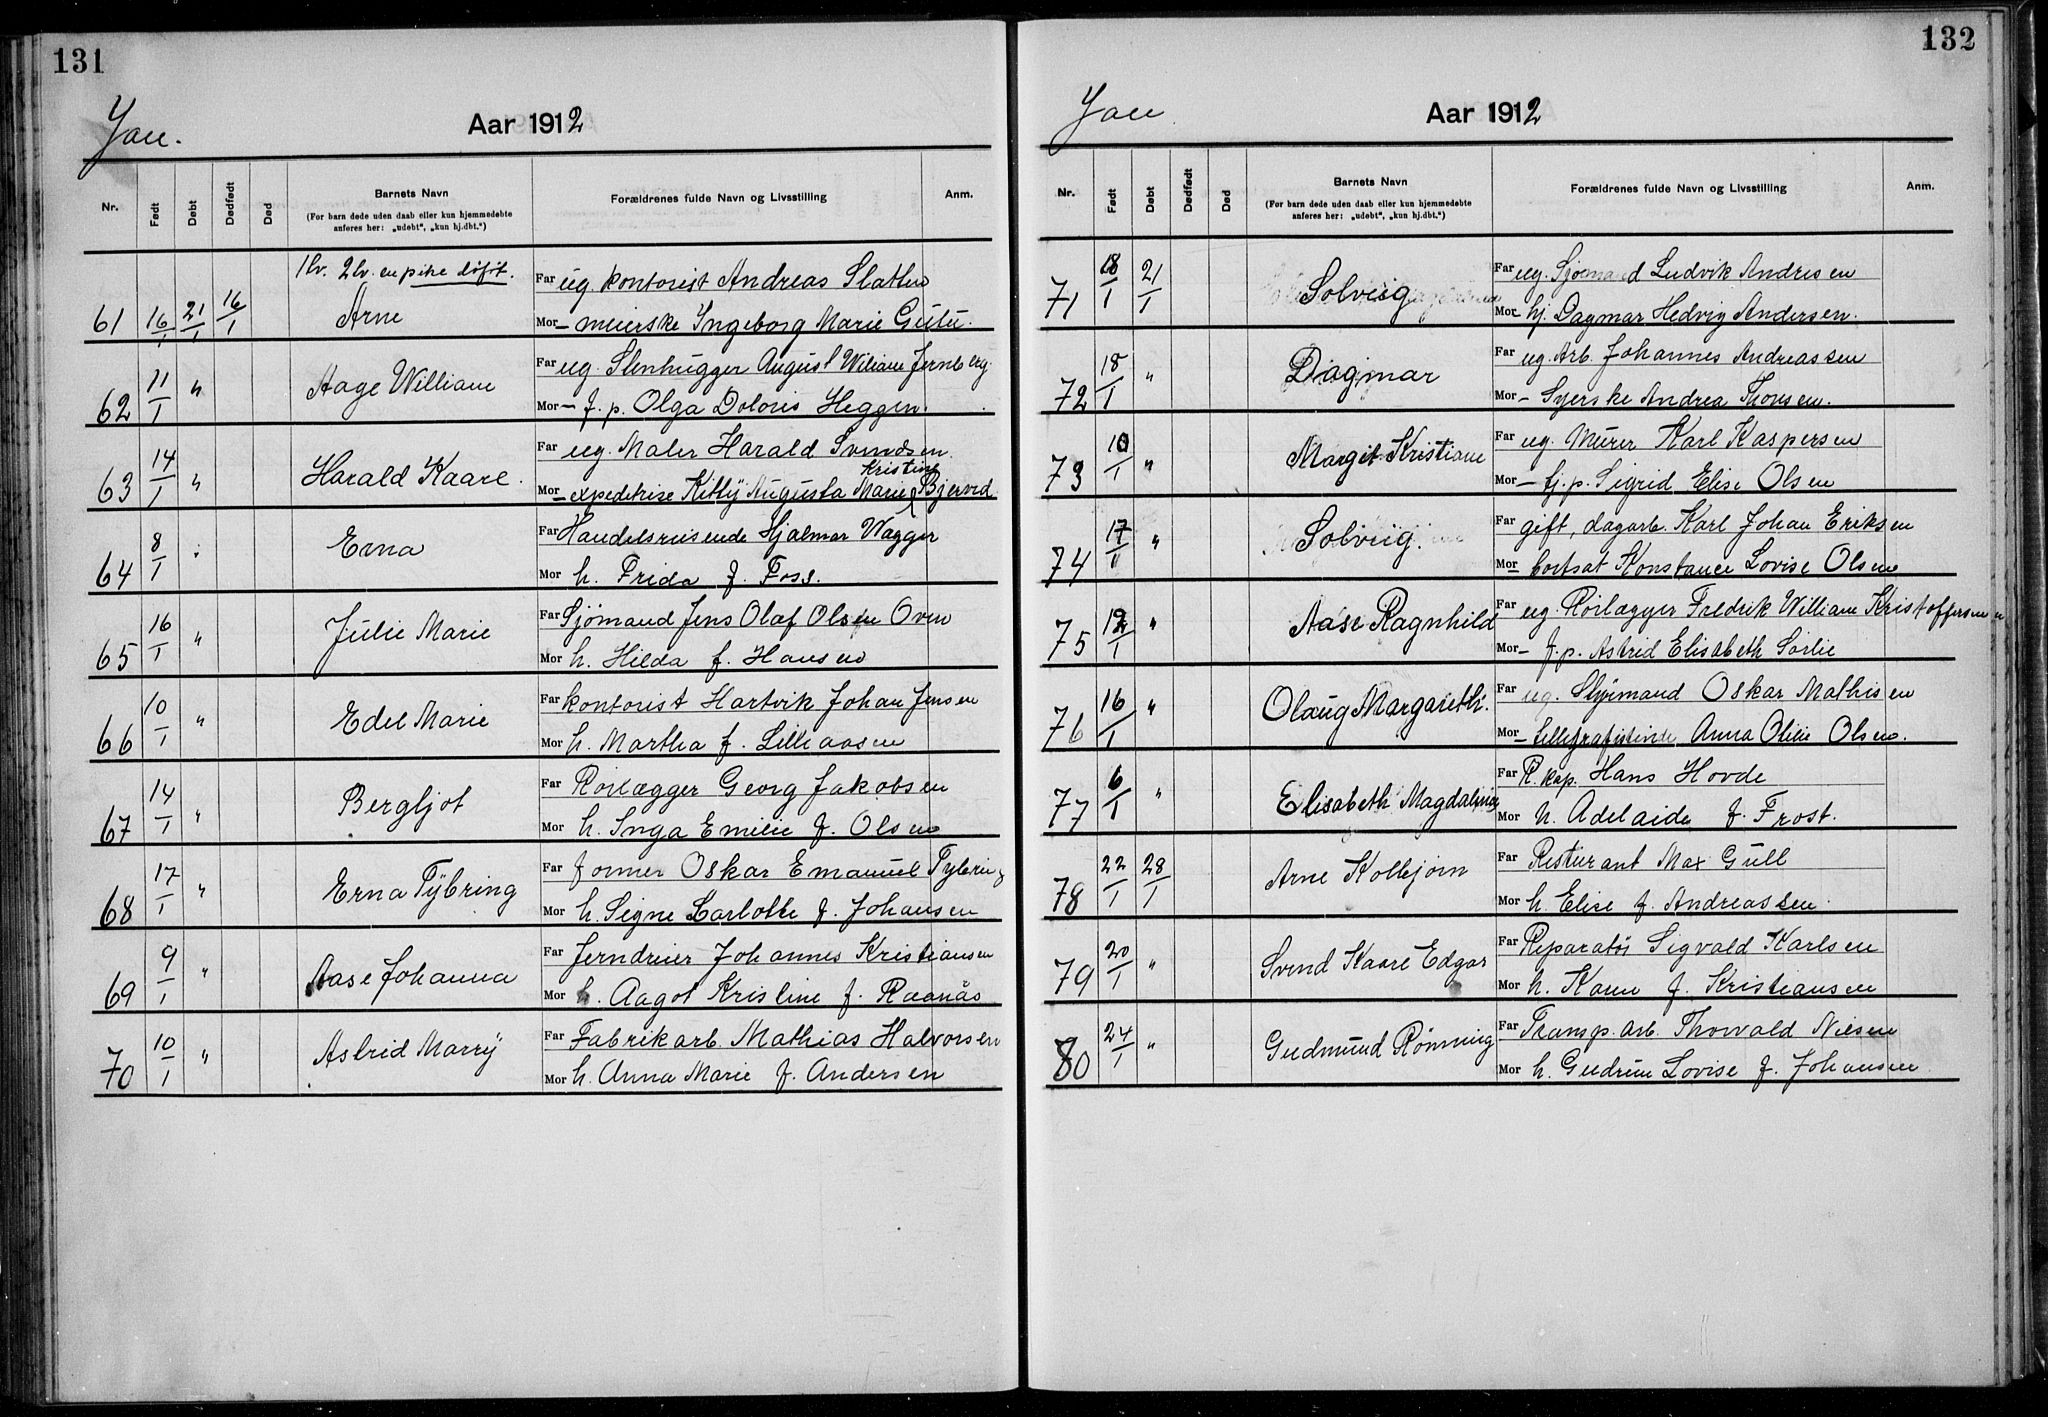 131
Jan.
Aar 1912
Nr. Født Døbt Dødfødt Død Barnets Navn Forældrenes fulde Navn og Livsstilling Anm.
(For barn døde uden daab eller kun hjemmedøbte
anføres her: „udøbt“, „kun hj.dbt.“)
1 lv. 2 lv. en pike döföt.
Far ug. kontorist Andreas Slatten
61 16/1 21/1 16/1 Arne
Mor — meierske Ingeborg Marie Gulu.
Far ug. Stenhugger August Wiliam Jernberg.
62 11/1 " Aage William
Mor — f. p. Olga Doloris Heggen.
Far ug. Maler Harald Svendsen.
63 14/1 " Harald Kaare.
Kristine
Mor — expeditrise Kitty Augusta Marie Bjerved
Far Handelsreisende Hjalmar Wagger
64 8/1 " Erna
Mor h. Frida f. Foss.
Far Sjömand Jens Olaf Olsen Oven
65 16/1 " Julie Marie
Mor h. Hilda f. Hansen
Far kontorist Hartvik Johan Jensen
66 10/1 " Edel Marie
Mor h. Martha f. Lilleaasen
Far Rörlægger Georg Jakobsen
67 14/1 " Bergljot
Mor h. Inga Emilie f. Olsen
Far former Oskar Emanuel Tybring
68 17/1 " Erna Tybring
Mor h. Signe Carlotte f. Johansen
Far Jerndreier Johannes Kristiansen
69 9/1 " Aase Johanna
Mor h. Aagot Kristine f. Raanås
Far Fabrikarb. Mathias Halvorsen
70 10/1 " Astrid Marry
Mor h. Anna Marie f. Andersen
132
Jan
Aar 1912
Nr. Født Døbt Dødfødt Død Barnets Navn Forældrenes fulde Navn og Livsstilling Anm.
(For barn døde uden daab eller kun hjemmedøbte
anføres her: „udøbt“, „kun hj.dbt.“)
Far ug. Sjömand Ludvik Andresen
71 18/1 21/1 Solveig
Mor — hj. Dagmar Hedvig Andersen.
Far ug. Arb. Johannes Andreassen
72 18/1 " Dagmar
Mor — Syerske Andrea Thonsen.
Far ug. Murer Karl Kaspersen
73 10/1 " Margit Kristiane
Mor — tj. p. Sigrid Elise Olsen
Far gift, dagarb. Karl Johan Eriksen
74 17/11 " Solveig.
Mor — bortsat Konstance Lovise Olsen
Far ug. Rörlægger Fredrik William Kristoffersen
75 12/1 " Aase Ragnhild
Mor — f. p. Astrid Elisabeth Sörlie
Far ug. Styrmand Oskar Mathisen
76 16/1 " Olaug Margareth.
Mor — Tellegrafistinde Anna Otilie Olsen.
Far R. kap. Hans Hovde
77 6/1 " Elisabeth Magdalene
Mor h. Adelaide f. Frost.
Far Resturant Max Gull
78 22/1 28/1 Arne Kolbjörn
Mor h. Elise f. Andreassen.
Far Reparatör Sigvald Karlsen
79 20/1 " Svend Kaare Edgar
Mor h. Karen f. Kristiansen
Far Transp. arb. Thorvald Nilsen
80 24/1 " Gudmund Rönning
Mor h. Gudrun Lovise f. Johansen